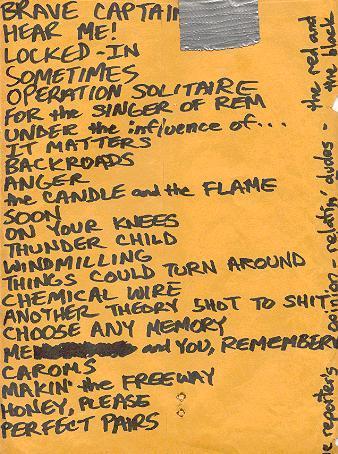 BRAVE CAPTAIN
HEAR ME!
LOCKED-IN
SOMETIMES
OPERATION SOLITAIRE
FOR the SINGER OF REM
UNDER the influence of...
IT MATTERS
BACKROADS
ANGER
the CANDLE and the FLAME
SOON
ON YOUR KNEES
THUNDER CHILD
WINDMILLING
THINGS COULD TURN AROUND
CHEMICAL WIRE
ANOTHER THEORY SHOT TO SHIT
CHOOSE ANY MEMORY
ME and YOU, REMEMBER
CAROMS
MAKIN' the FREEWAY
HONEY, PLEASE
PERFECT PAIRS
reporter's opinion - relatin' dudes - the red and
the black